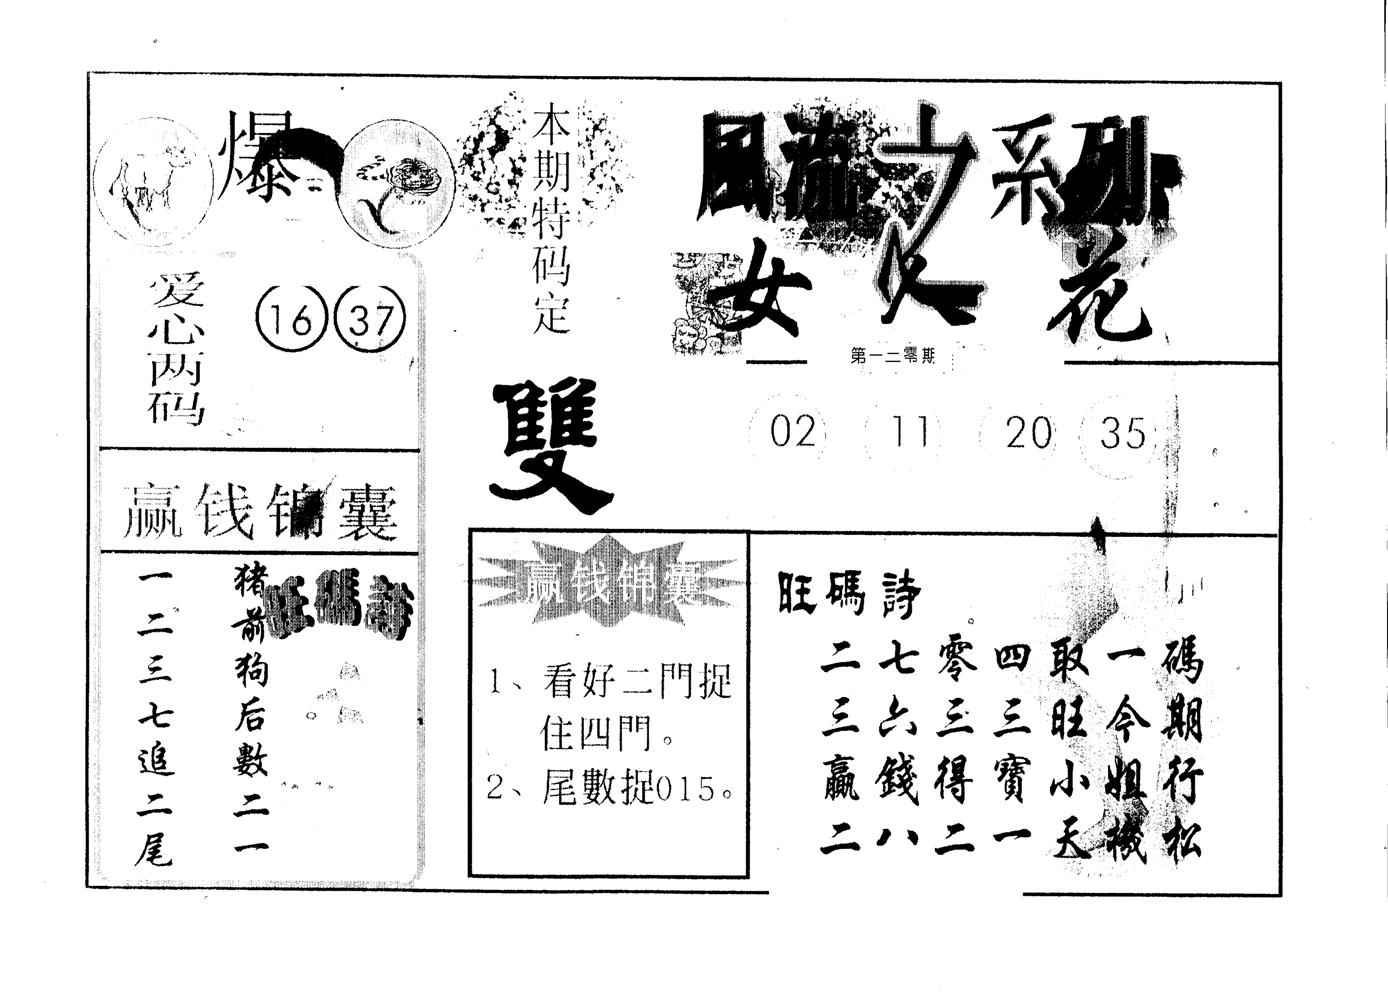 爆
本期特码定
雙
風流之系列
女人花
第一二零期
02 11 20 35
爱心两码
16 37
赢钱锦囊
猪前狗后數二一
一二三七追二尾
旺碼詩
赢钱锦囊
1、看好二門捉
住四門。
2、尾數捉015。
旺碼詩
二七零四取一碼
三六三三旺今期
贏錢得寶小姐行
二八二一天機松